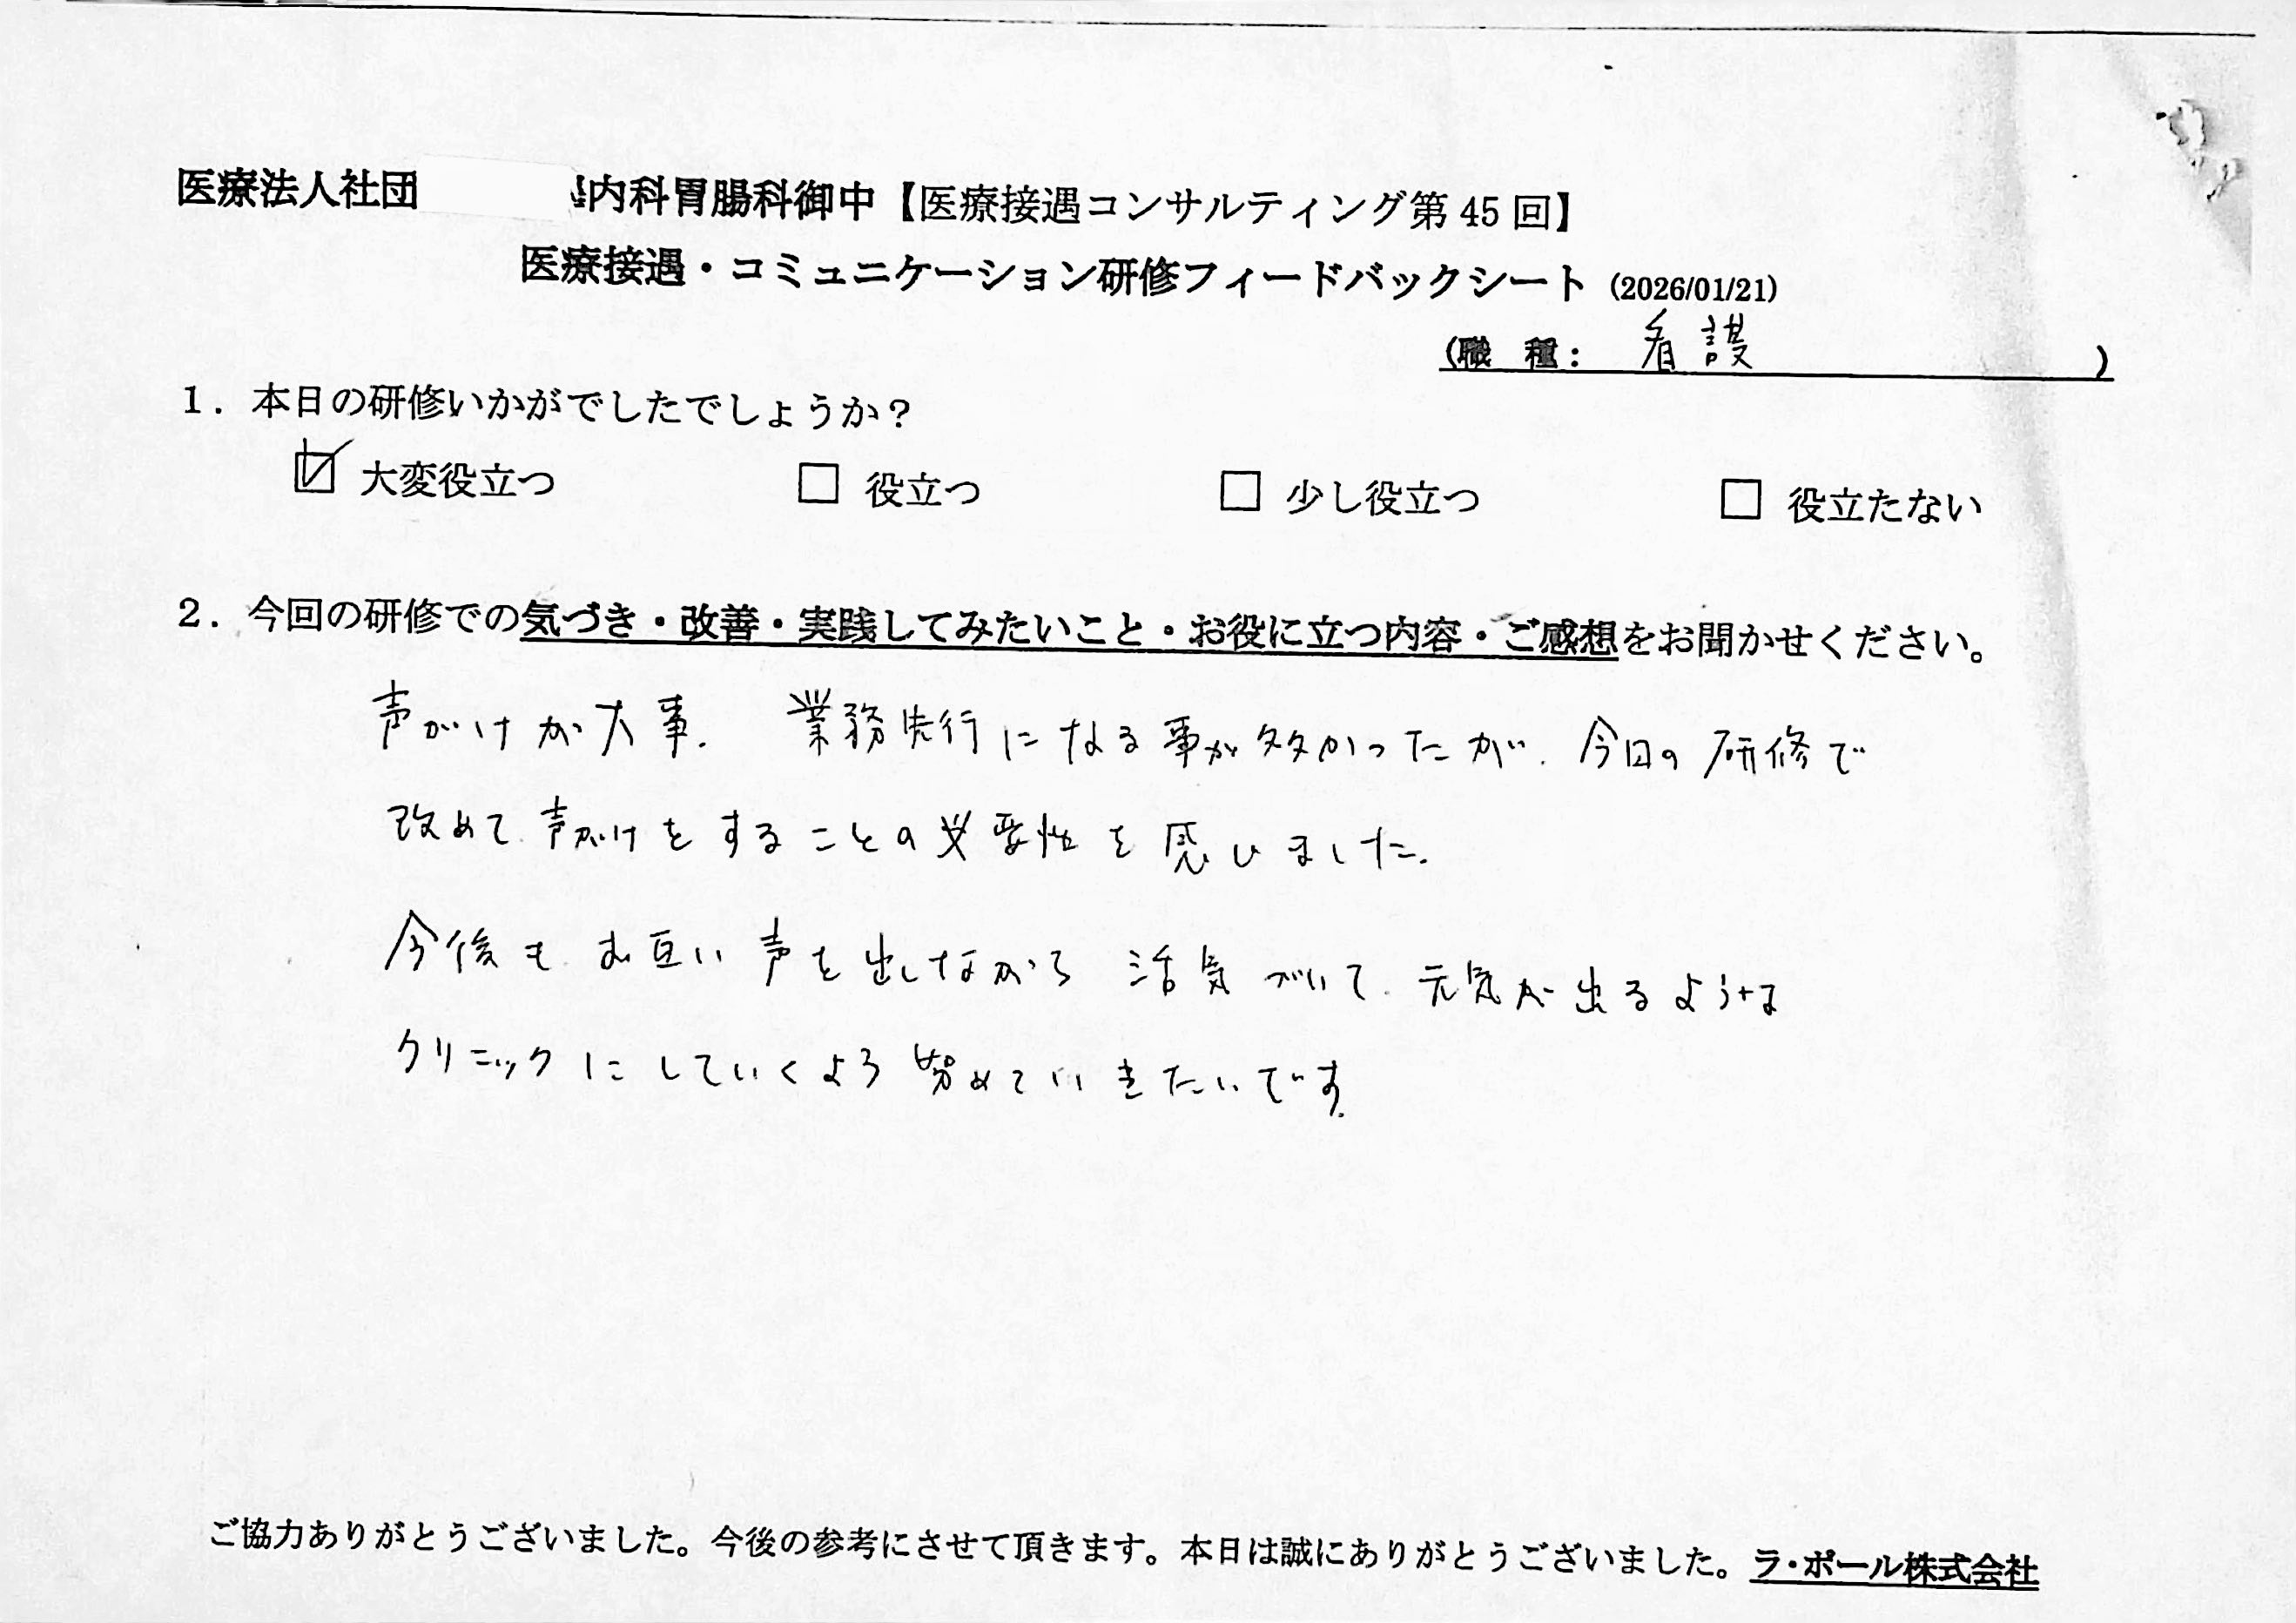 医療法人社団 内科胃腸科御中【医療接遇コンサルティング第 45 回】
医療接遇・コミュニケーション研修フィードバックシート (2026/01/21)
(職 種: 看護 )
1. 本日の研修いかがでしたでしょうか?
☑ 大変役立つ □ 役立つ □ 少し役立つ □ 役立たない
2. 今回の研修での気づき・改善・実践してみたいこと・お役に立つ内容・ご感想をお聞かせください。
声がけが大事. 業務先行になる事が多かったが、今日の研修で
改めて声がけをすることの必要性を感じました.
今後も お互い声を出しながら 活気づいて 元気が出るような
クリニックにしていくよう努めていきたいです.
ご協力ありがとうございました。今後の参考にさせて頂きます。本日は誠にありがとうございました。ラ・ポール株式会社